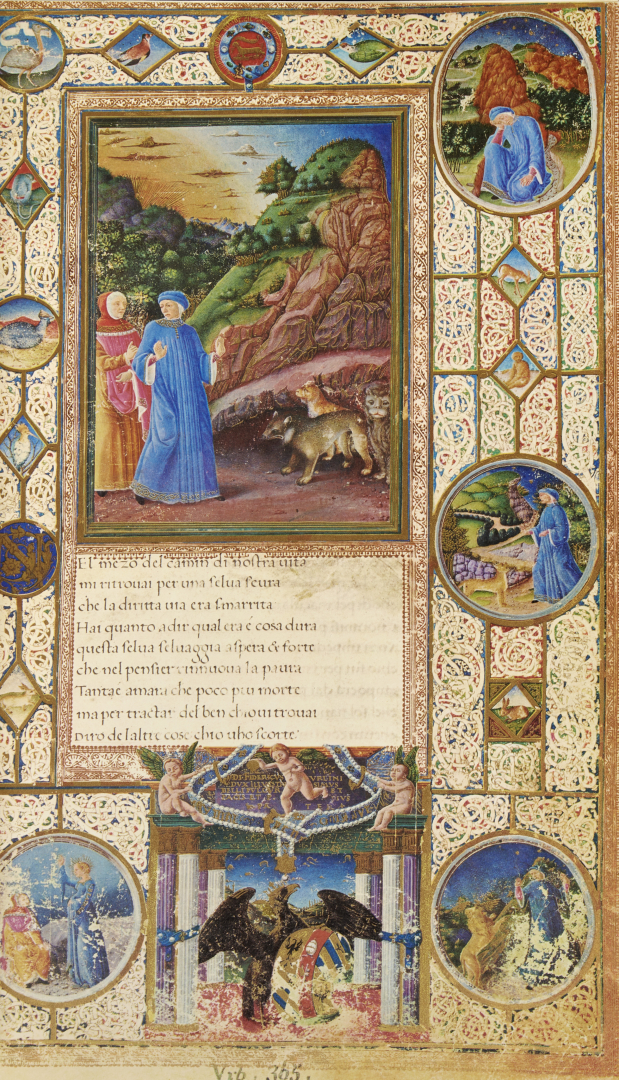 El mezo del camin di nostra uita
mi ritrouai per una selua scura
che la diritta uia era smarrita
Hai quanto adir qual era è cosa dura
questa selua seluaggia aspera & forte
che nel pensier rinnuoua la paura
Tantae amara che poco piu morte
ma per tractar del ben chiqui trouai
Diro delaltre cose chio uho scorte.
Vrb. 365.